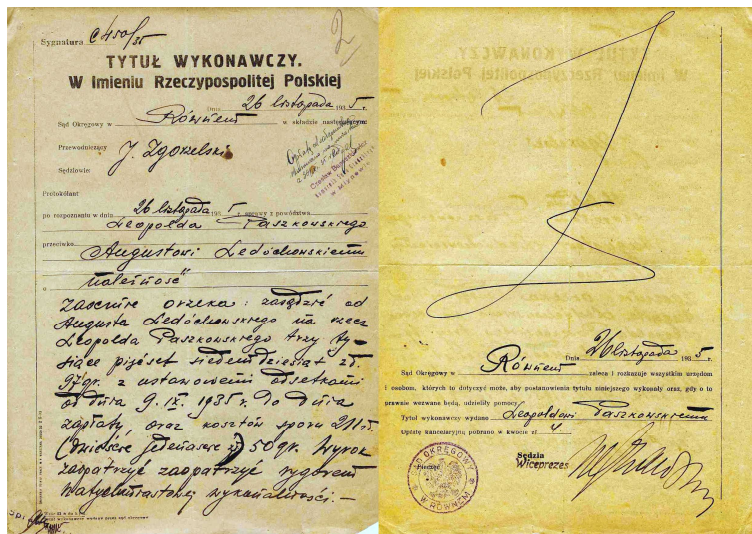 Sygnatura C 450/35
2
TYTUŁ WYKONAWCZY.
W Imieniu Rzeczypospolitej Polskiej
Dnia 26 listopada 1935 r.
Sąd Okręgowy w Równem w składzie następującym:
Przewodniczący J. Zgorzelski
Sędziowie:
Protokólant
po rozpoznaniu w dniu 26 listopada 1935 r. sprawy z powództwa
Leopolda Paszkowskiego
przeciwko
Augustowi Ledóchowskiemu
o należność
zaocznie orzeka: zasądzić od
Augusta Ledóchowskiego na rzecz
Leopolda Paszkowskiego trzy ty-
siące pięćset siedemdziesiąt zł.
97 gr. z ustawowemi odsetkami
od dnia 9.IX.1935 r. do dnia
zapłaty, oraz kosztów sporu 211 zł.
(dwieście jedenaście zł) 50 gr. Wyrok
zaopatrzyć zaopatrzyć rygorem
natychmiastowej wykonalności.—
Dnia 26 listopada 1935 r.
Sąd Okręgowy w Równem zaleca i rozkazuje wszystkim urzędom
i osobom, których to dotyczyć może, aby postanowienia tytułu niniejszego wykonały oraz, gdy o to
prawnie wezwane będą, udzieliły pomocy.
Tytuł wykonawczy wydano Leopoldowi Paszkowskiemu
Opłatę kancelaryjną pobrano w kwocie zł 4
Sędzia
Wiceprezes
Pieczęć
SĄD OKRĘGOWY
W RÓWNEM